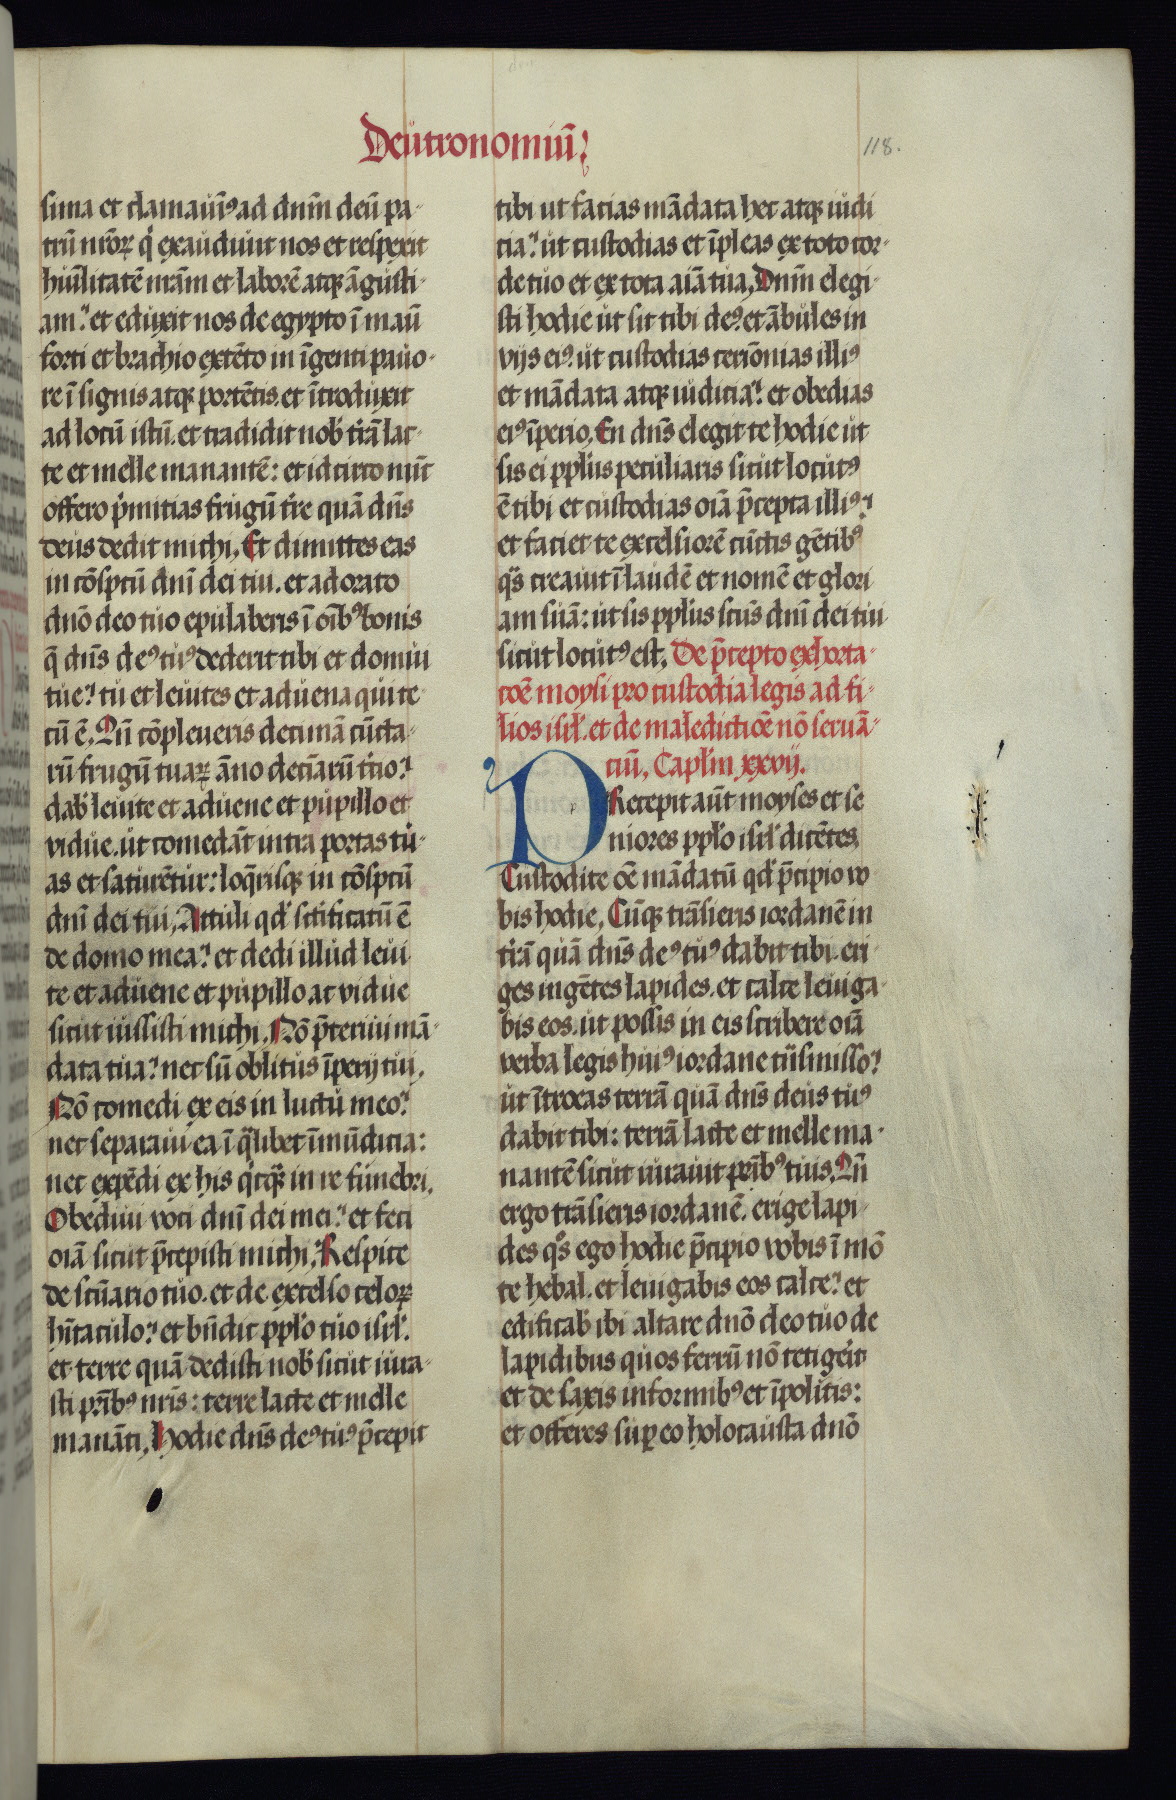 Deutronomiū
118.
sima et clamauim⁹ ad dnm̄ deū pa-
trū nr̄oꝝ q' exaudiuit nos et respexit
hūilitatē nrām et laborē atqꝫ āgusti-
am. et eduxit nos de egypto ī manū
forti et brachio extēto in īgenti pauo-
re ī signis atqꝫ portētis. et ītroduxit
ad locū istū. et tradidit nob' tr̄ā lac-
te et melle manantē: et idcirco nūc
offero p'mitias frugū tr̄e quā dn̄s
deus dedit michi, Et dimittes eas
in cōsptū dn̄i dei tui. et adorato
dn̄o deo tuo epulaberis ī oīb⁹ bonis
q̄ dn̄s de⁹ tu⁹ dederit tibi et domui
tue? tu et leuites et aduena qui te
cū ē, Qn̄ cōpleueris decimā cūcta-
rū frugū tuaꝝ āno deciaꝝ t'cio?
dab' leuite et aduene et pupillo et
vidue. ut comedāt intra portas tu-
as et saturētur: loq̄risqꝫ in cōsptū
dn̄i dei tui, Attuli qd' sc̄ificatū ē
de domo mea? et dedi illud leui
te et aduene et pupillo ac vidue
sicut iussisti michi, Nō p̄teriui mā-
data tua? nec sū oblitus īperij tui,
Nō comedi ex eis in luctu meo?
nec separaui ea ī q̄libet īmūdicia:
nec expēdi ex his q'cqꝫ in re funebri,
Obediui voci dn̄i dei mei? et feci
oīa sicut p̄cepisti michi, Respice
de scūario tuo. et de excelso celoꝝ
hītaculo? et bn̄dic pplo tuo isrl'.
et terre quā dedisti nob' sicut iura-
sti pr̄ib⁹ nr̄is: terre lacte et melle
manāti, Hodie dn̄s de⁹ tu⁹ p̄cepit
tibi ut facias mādata hec atqꝫ iudi
cia? ut custodias et īpleas ex toto cor-
de tuo et ex tota aīa tua, Dnm̄ elegi
sti hodie ut sit tibi de⁹. et ābules in
vijs ei⁹. ut custodias cerīonias illi⁹
et mādata atqꝫ iudicia? et obedias
ei⁹ īperio, En dn̄s elegit te hodie ut
sis ei pplus peculiaris sicut locut⁹
ē tibi et custodias oīa p̄cepta illi⁹?
et faciet te excelsiorē cūctis gētib⁹
q̄s creauit ī laudē et nomē et glori
am suā: ut sis pplus scūs dn̄i dei tui
sicut locut⁹ est, De p̄cepto exhorta-
tōe moysi pro custodia legis ad fi-
lios isrl'. et de maledictiōe nō seruā-
ciū, Caplm xxvij.
PRecepit aūt moyses et se
niores pplo isrl' dicētes
Custodite oē mādatū qd' p̄cipio vo
bis hodie, Cūqꝫ trāsieris iordanē in
tr̄ā quā dn̄s de⁹ tu⁹ dabit tibi. eri
ges ingētes lapides. et calce leuiga-
bis eos. ut possis in eis scribere oīa
verba legis hui⁹ iordane tūsmisso?
ut ītroeas terrā quā dn̄s deus tu⁹
dabit tibi: terrā lacte et melle ma-
nantē sicut iurauit pr̄ib⁹ tuis, Qn̄
ergo trāsieris iordanē. erige lapi
des q̄s ego hodie p̄cipio vobis ī mō
te hebal. et leuigabis eos calce? et
edificab' ibi altare dn̄o deo tuo de
lapidibus quos ferrū nō tetigerit
et de saxis informib⁹ et īpolitis:
et offeres suꝑ eo holocausta dn̄o